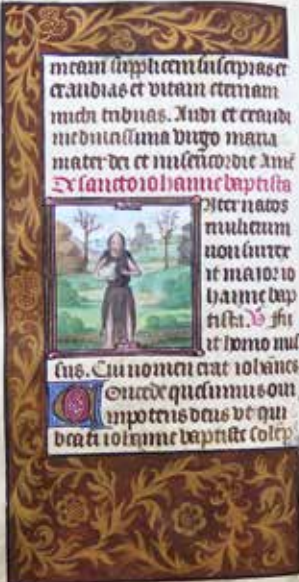 meam supplicem suscipias et
exaudias et vitam eternam
michi tribuas. Audi et exaudi
me dulcissima virgo maria
mater dei et misericordie Amē
De sancto iohanne baptista
Nter natos
mulierum
non surrex
it maior io
hanne bap
tista. V Fu
it homo mis
sus. Cui nomen erat iohānes
Oncede quesumus om
nipotens deus vt qui
beati iohanne baptiste solēp